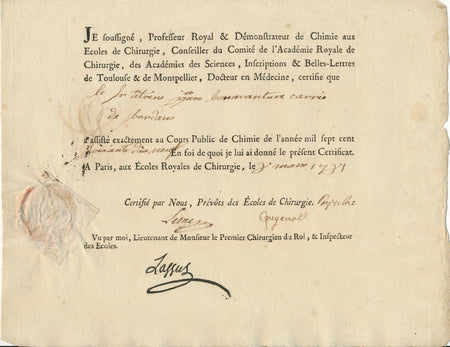 JE soussigné, Professeur Royal & Démonstrateur de Chimie aux
Ecoles de Chirurgie, Conseiller du Comité de l'Académie Royale de
Chirurgie, des Académies des Sciences, Inscriptions & Belles-Lettres
de Toulouse & de Montpellier, Docteur en Médecine, certifie que
le Sr bonaventure
de bordeaux
a assisté exactement au Cours Public de Chimie de l'année mil sept cent
En foi de quoi je lui ai donné le présent Certificat.
A Paris, aux Écoles Royales de Chirurgie, le mars
Certifié par Nous, Prévôts des Écoles de Chirurgie.
Vu par moi, Lieutenant de Monsieur le Premier Chirurgien du Roi, & Inspecteur
des Ecoles.
Lassus